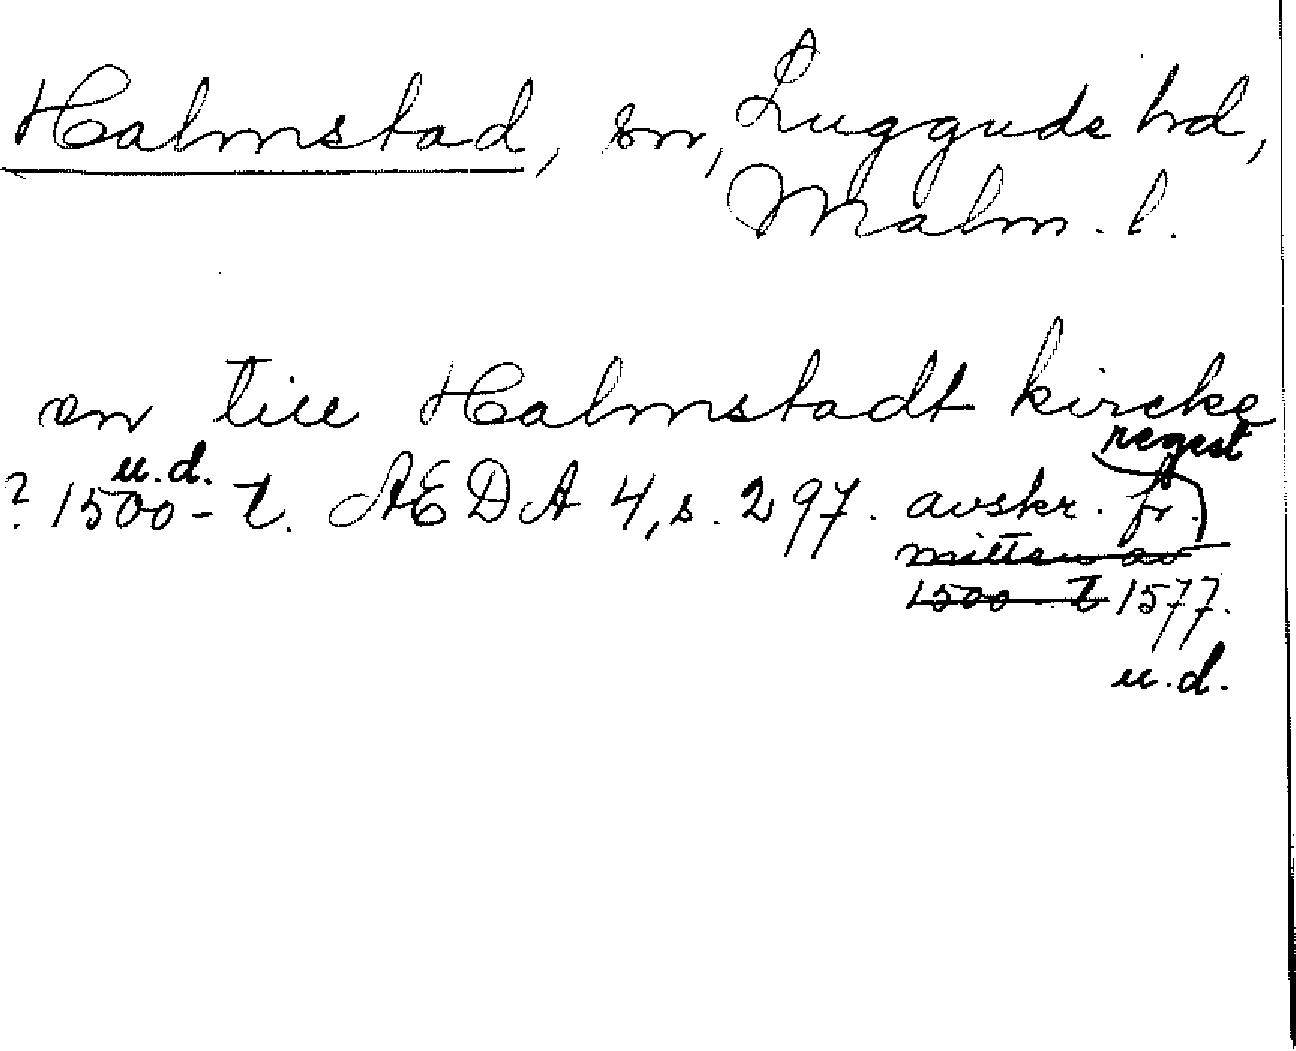 Halmstad, sn, Luggude hd,
Malm. l.
en till Halmstadt kircke
regest
u.d.
? 1500-t. AEDA 4, s. 297. avskr. fr.
mitten av
1500-t 1577.
u.d.